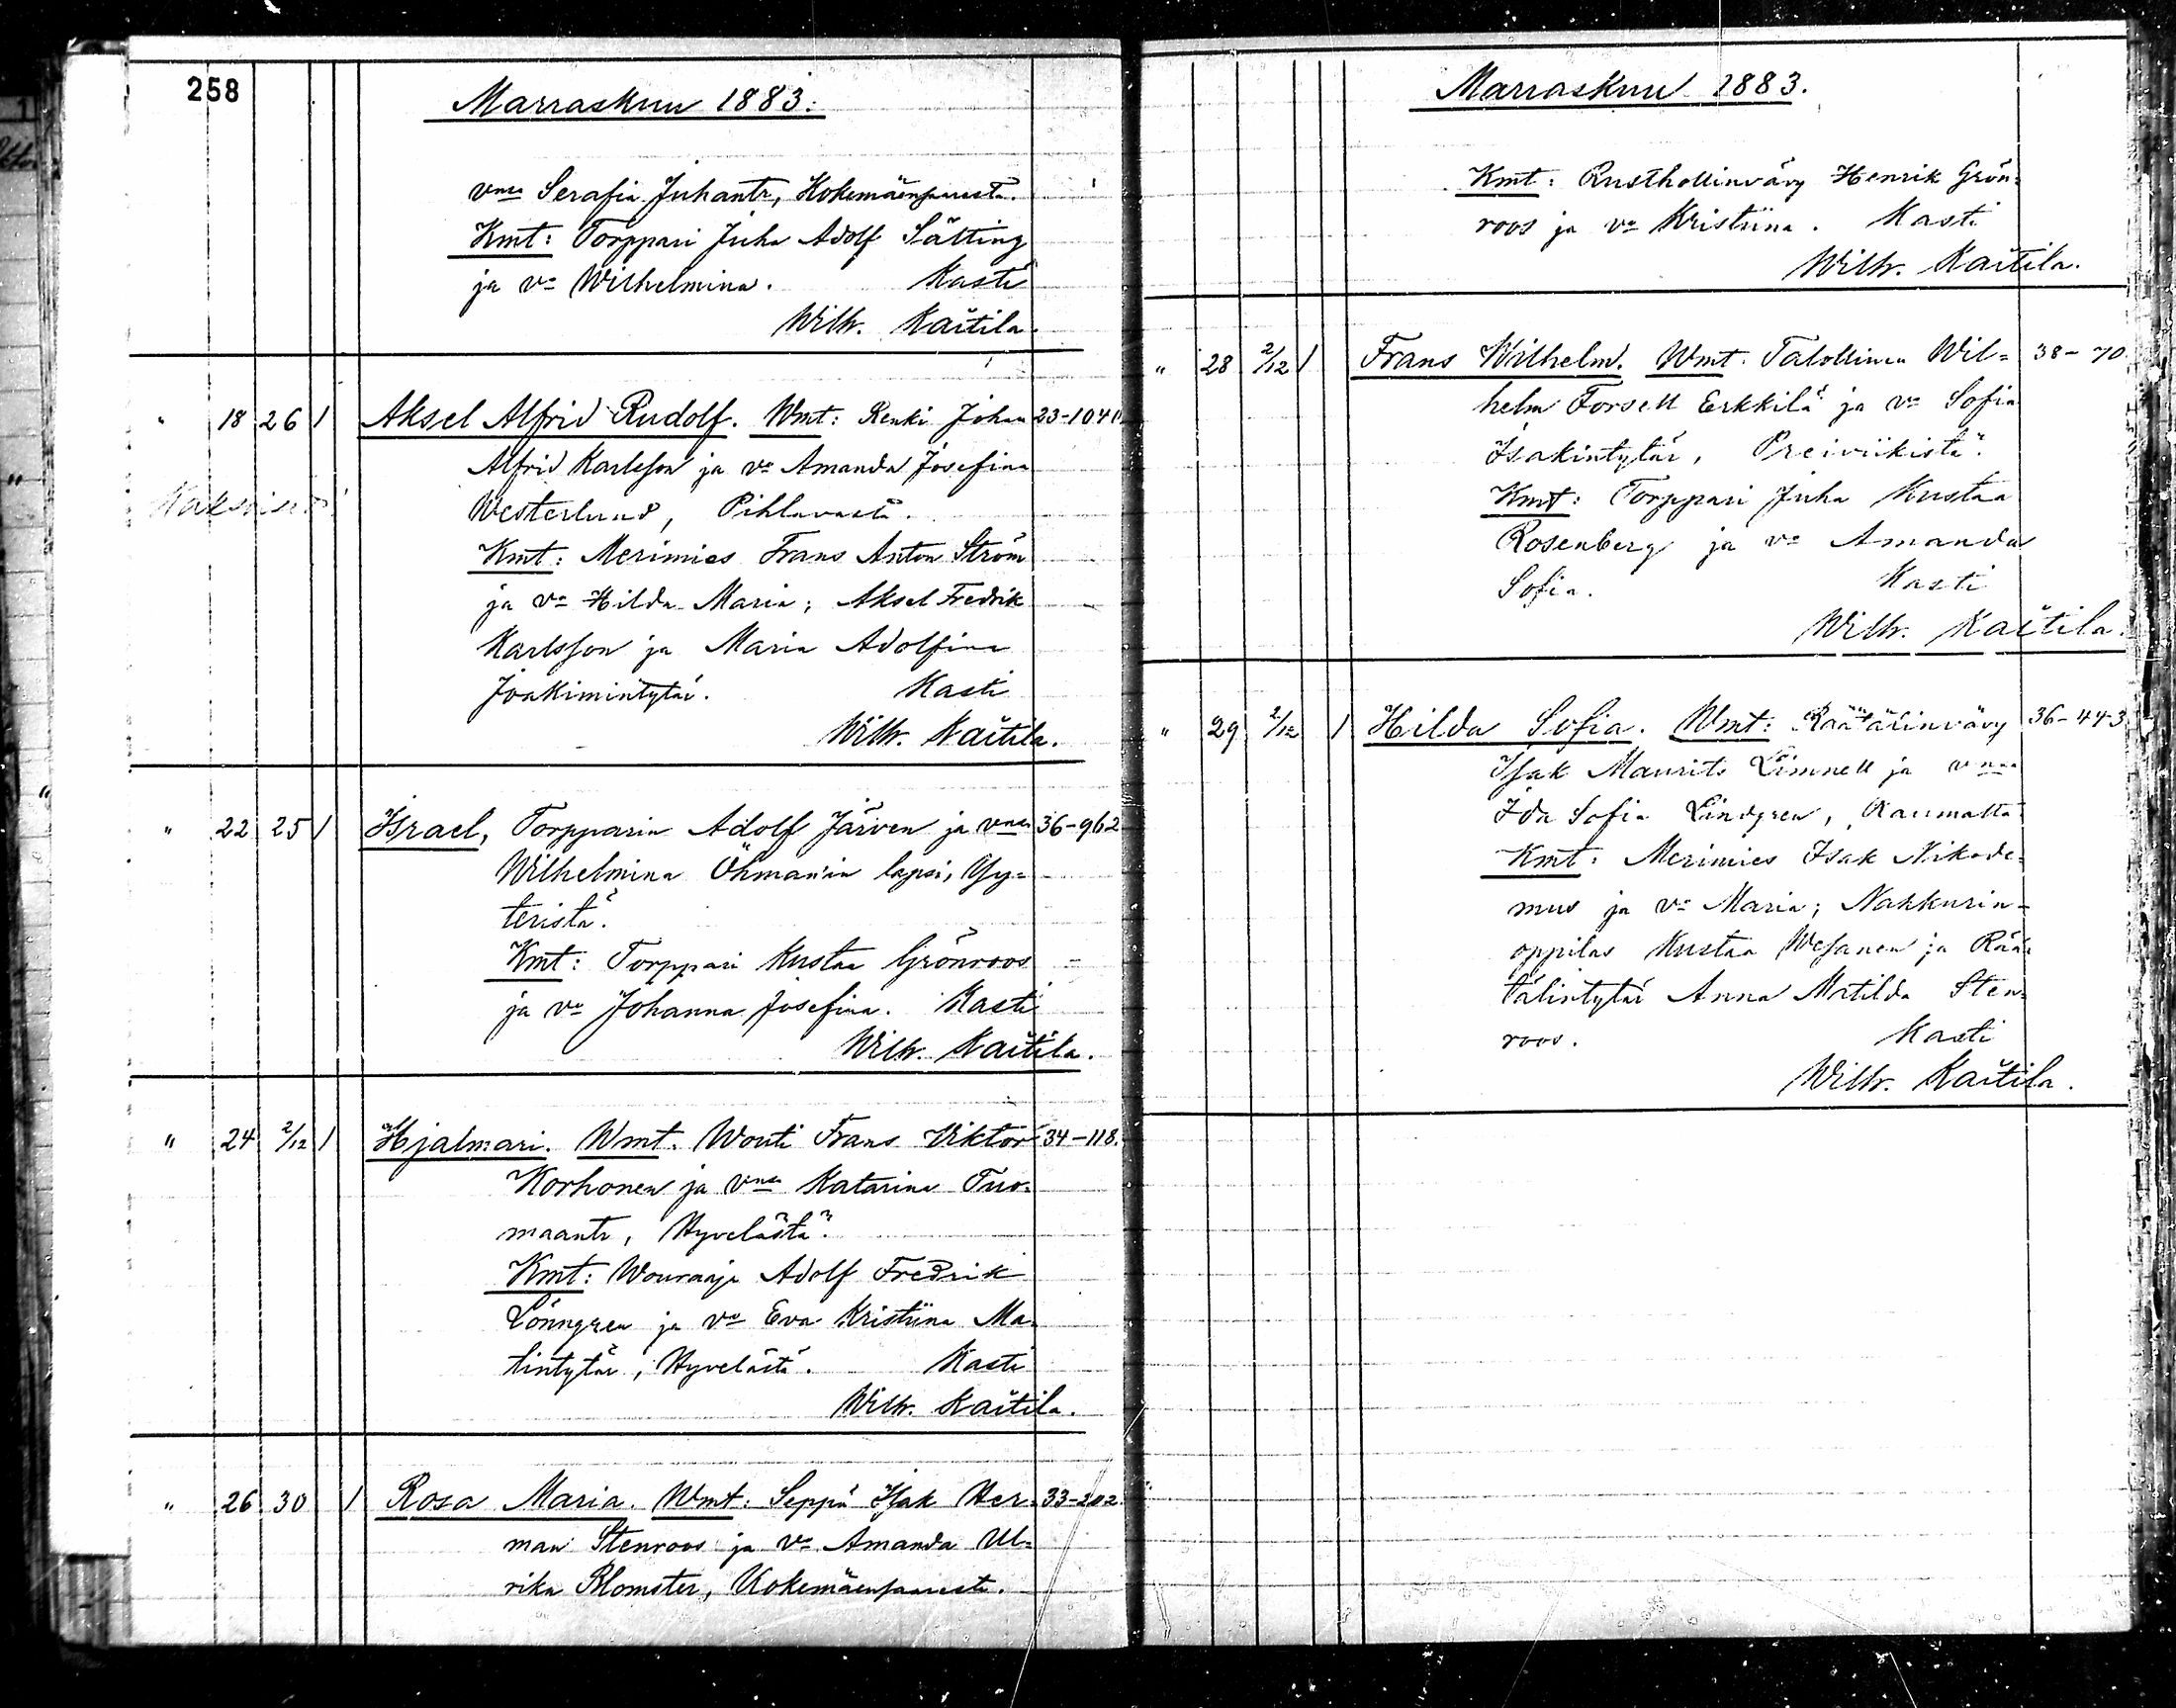 258
Marraskuu 1883.
vmsa Serafia Juhantr, Kokemäensaaresta.
Kmt: Torppari Juha Adolf Sätting
ja vo Wilhelmina. Kasti
Wilh. Kaitila.
" 18 26 1 Aksel Alfrid Rudolf. Wmt: Renki Johan 23-1041.
Alfrid Karlsson ja vo Amanda Josefina
Westerlund, Pihlavasta.
Kmt: Merimies Frans Anton Ström
ja vo Hilda Maria; Aksel Fredrik
Karlsson ja Maria Adolfina
Joakimintytär. Kasti
Wilh. Kaitila.
" 22 25 1 Israel, Torpparin Adolf Järven ja vmsa 36-962
Wilhelmina Öhman'in lapsi, Yy=
teristä.
Kmt: Torppari Kustaa Grönroos
ja vo Johanna Josefina. Kasti
Wilh. Kaitila.
" 24 2/12 1 Hjalmari. Wmt. Wouti Frans Viktor 34-118.
Korhonen ja vmsa Katarina Tuo=
maantr, Hyvelästä.
Kmt: Wouraaja Adolf Fredrik
Lönngren ja vo Eva Kristiina Ma=
tintytär, Hyvelästä. Kasti
Wilh. Kaitila.
" 26 30 1 Rosa Maria. Wmt: Seppä Isak Her= 33-202.
man Stenroos ja vo Amanda Ul=
rika Blomster, Kokemäensaaresta.
Marraskuu 1883.
Kmt: Rusthollinvävy Henrik Grön=
roos ja vo Kristiina. Kasti
Wilh. Kaitila.
" 28 2/12 1 Frans Wilhelm. Wmt. Talollinen Wil= 38-70.
helm Forsell Erkkilä ja vo Sofia
Isakintytär, Preiviikistä.
Kmt: Torppari Juha Kustaa
Rosenberg ja vo Amanda
Sofia. Kasti
Wilh. Kaitila.
" 29 2/12 1 Hilda Sofia. Wmt: Räätälinvävy 36-443
Isak Maurits Limnell ja vmsa
Ida Sofia Lindgren,
Kmt: Merimies Isak Nikode=
mus ja vo Maria; Nahkurin=
oppilas Kustaa Wesanen ja Rää=
tälintytär Anna Matilda Sten=
roos. Kasti
Wilh. Kaitila.